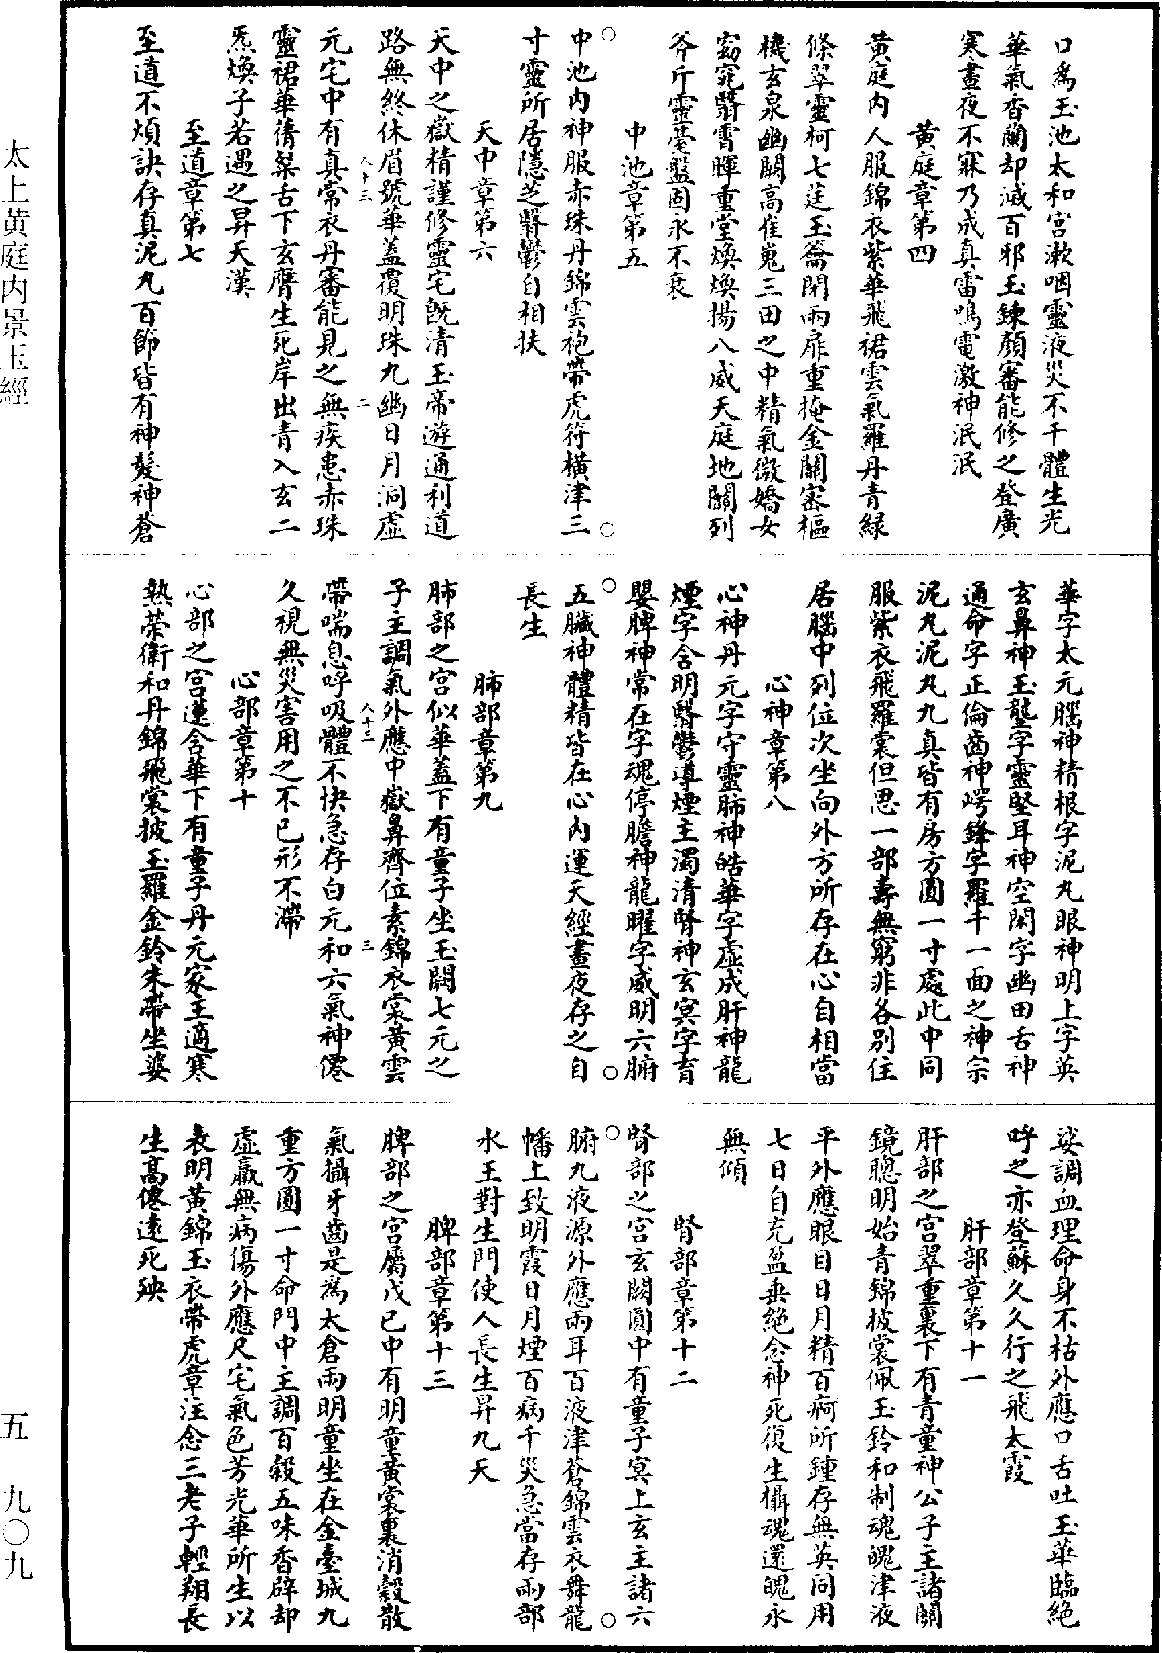 口為玉池太和宮漱咽靈液災不干體生光
華氣香蘭却滅百邪玉鍊顏審能修之登廣
寒晝夜不寐乃成真雷鳴電激神泯泯
黃庭章第四
黃庭內人服錦衣紫華飛裙雲氣羅丹青緑
條翠靈柯七莛玉籥閉兩扉重掩金關審樞
機玄泉幽闕高崔嵬三田之中精氣微嬌女
窈窕翳霄暉重堂煥煥揚八威天庭地關列
斧斤靈臺盤固永不衰
中池章第五
中池內神服赤珠丹錦雲袍帶虎符橫津三
寸靈所居隱芝翳鬱自相扶
天中章第六
天中之嶽精謹修靈宅旣清玉帝遊通利道
路無終休眉號華蓋覆明珠九幽日月洞虛
元宅中有真常衣丹審能見之無疾患赤珠
靈裙華蒨粲舌下玄膺生死岸出青入玄二
炁煥子若遇之昇天漢
至道章第七
至道不煩訣存真泥丸百節皆有神髮神蒼
華字太元腦神精根字泥丸眼神明上字英
玄鼻神玉壟字靈堅耳神空閑字幽田舌神
通命字正倫齒神崿鋒字羅千一面之神宗
泥丸泥丸九真皆有房方圓一寸處此中同
服紫衣飛羅裳但思一部壽無窮非各別住
居腦中列位次坐向外方所存在心自相當
心神章第八
心神丹元字守靈肺神皓華字虛成肝神龍
煙字含明翳鬱導煙主濁清腎神玄冥字育
嬰脾神常在字魂停膽神龍曜字威明六腑
五臟神體精皆在心內運天經晝夜存之自
長生
肺部章第九
肺部之宮似華蓋下有童子坐玉闕七元之
子主調氣外應中嶽鼻齊位素錦衣裳黃雲
帶喘息呼吸體不快急存白元和六氣神僊
久視無災害用之不已形不滯
心部章第十
心部之宮蓮含華下有童子丹元家主適寒
熱榮衛和丹錦飛裳披玉羅金鈴朱帶坐婆
娑調血理命身不枯外應口舌吐玉華臨絕
呼之亦登蘇久久行之飛太霞
肝部章第十一
肝部之宮翠重裏下有青童神公子主諸關
鏡聰明始青錦披裳佩玉鈴和制魂魄津液
平外應眼目日月精百痾所鍾存無英同用
七日自充盈垂絕念神死復生攝魂還魄永
無傾
腎部章第十二
腎部之宮玄闕圓中有童子冥上玄主諸六
腑九液源外應兩耳百液津蒼錦雲衣舞龍
幡上致明霞日月煙百病千災急當存兩部
水王對生門使人長生昇九天
脾部章第十三
脾部之宮屬戊己中有明童黃裳裏消穀散
氣攝牙齒是為太倉兩明童坐在金臺城九
重方圓一寸命門中主調百穀五味香辟却
虛羸無病傷外應尺宅氣色芳光華所生以
表明黃錦玉衣帶虎章注念三老子輕翔長
生高僊遠死殃
八十三
二
八十三
三
太上黄庭内景玉經
五 九〇九